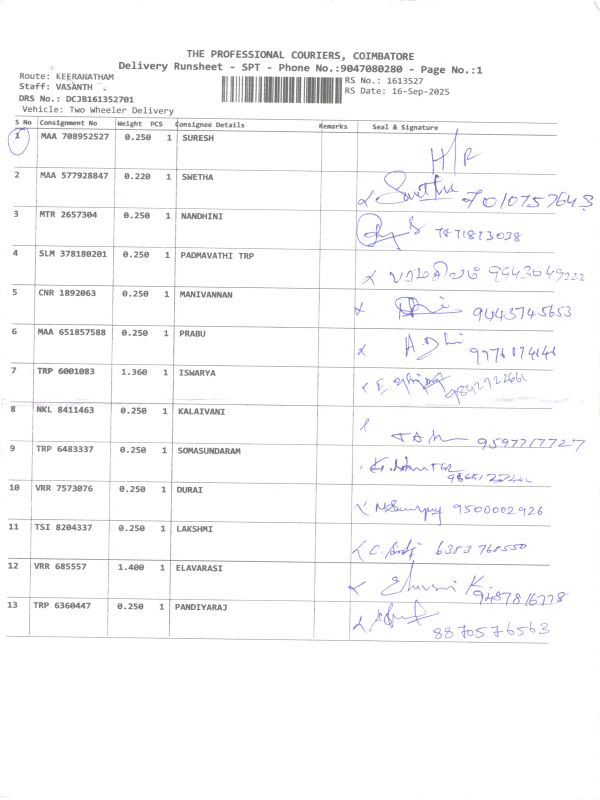 THE PROFESSIONAL COURIERS, COIMBATORE
Delivery Runsheet - SPT - Phone No.:9047080280 - Page No.:1
Route: KEERANATHAM
Staff: VASANTH
DRS No.: DCJB161352701
Vehicle: Two Wheeler Delivery
RS No.: 1613527
RS Date: 16-Sep-2025
S No Consignment No Weight PCS Consignee Details Remarks Seal & Signature
1 MAA 708952527 0.250 1 SURESH H/R
2 MAA 577928847 0.220 1 SWETHA Swetha 7010757643
3 MTR 2657304 0.250 1 NANDHINI 7871873038
4 SLM 378180201 0.250 1 PADMAVATHI TRP பரமசிவம் 9443049222
5 CNR 1892063 0.250 1 MANIVANNAN 9443745653
6 MAA 651857588 0.250 1 PRABU
7 TRP 6001083 1.360 1 ISWARYA
8 NKL 8411463 0.250 1 KALAIVANI 9597717727
9 TRP 6483337 0.250 1 SOMASUNDARAM
10 VRR 7573076 0.250 1 DURAI 9500002926
11 TSI 8204337 0.250 1 LAKSHMI 6383768550
12 VRR 685557 1.400 1 ELAVARASI 9487816778
13 TRP 6360447 0.250 1 PANDIYARAJ 8870576563